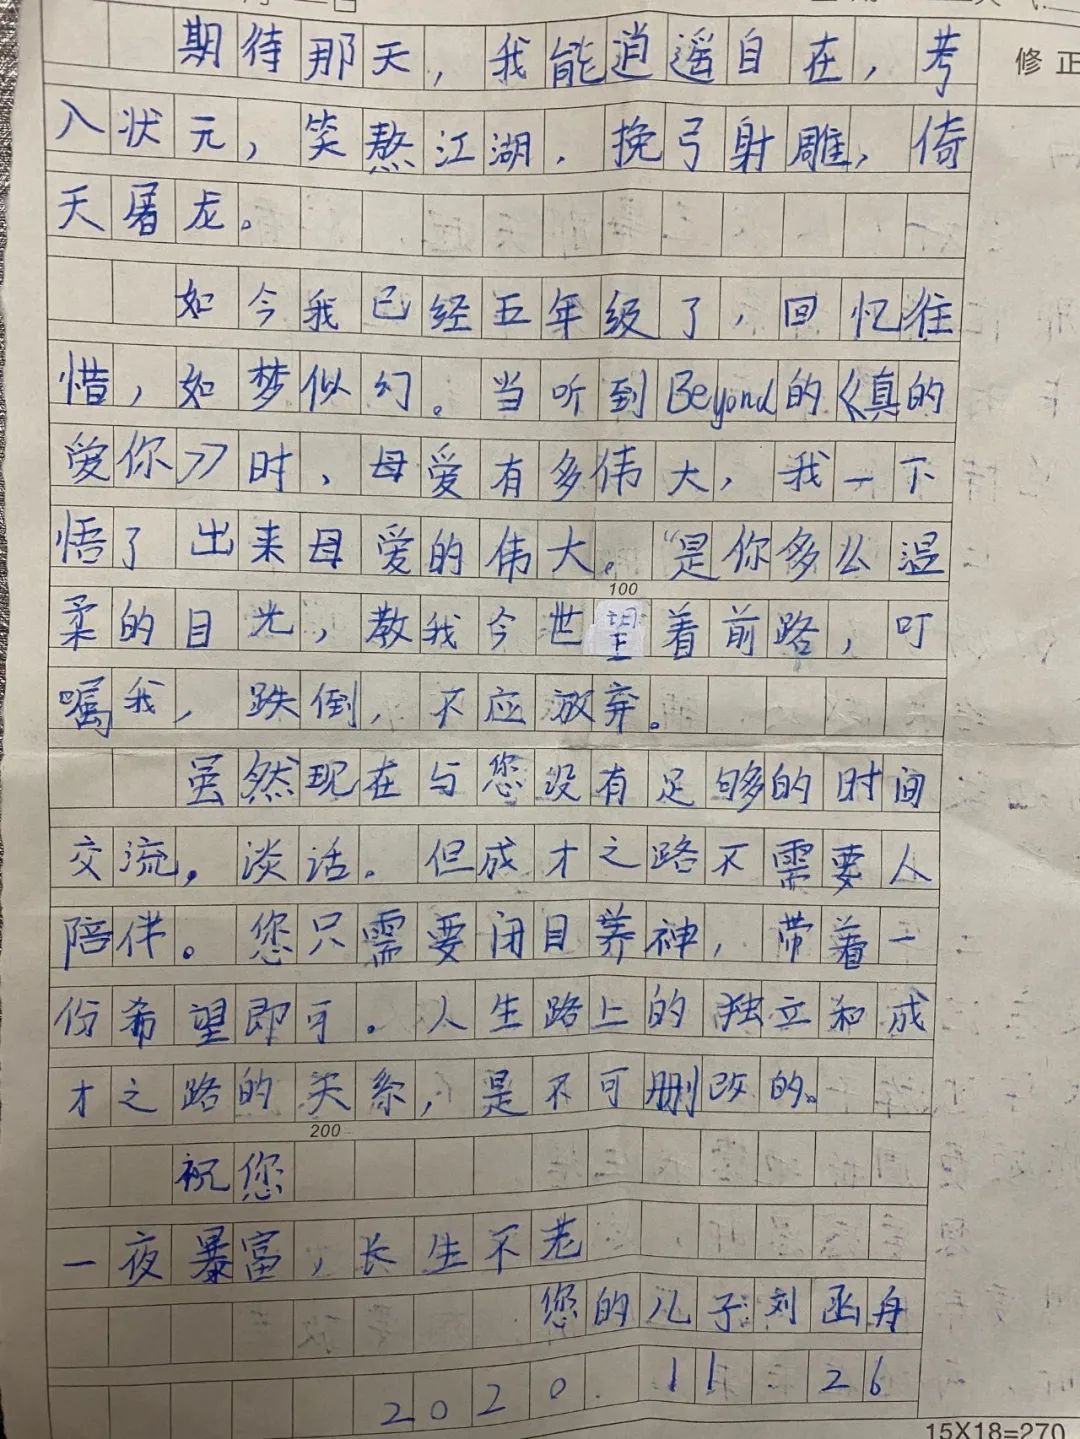 修正
期待那天，我能逍遥自在，考
入状元，笑熬江湖．挽弓射雕，倚
天屠龙。
如今我已经五年级了，回忆往
惜，如梦似幻。当听到Beyond的《真的
爱你》时、母爱有多伟大，我一下
悟了出来母爱的伟大。“是你多么温
100
柔的目光，教我今世望着前路，叮
嘱我，跌倒，不应放弃。
虽然现在与您没有足够的时间
交流，谈话．但成才之路不需要人
陪伴。您只需要闭目养神，带着一
份希望即可。人生路上的独立和成
才之路的关系，是不可删改的。
200
祝您
一夜暴富，长生不老
您的儿子刘函舟
2020.11.26
15X18=270